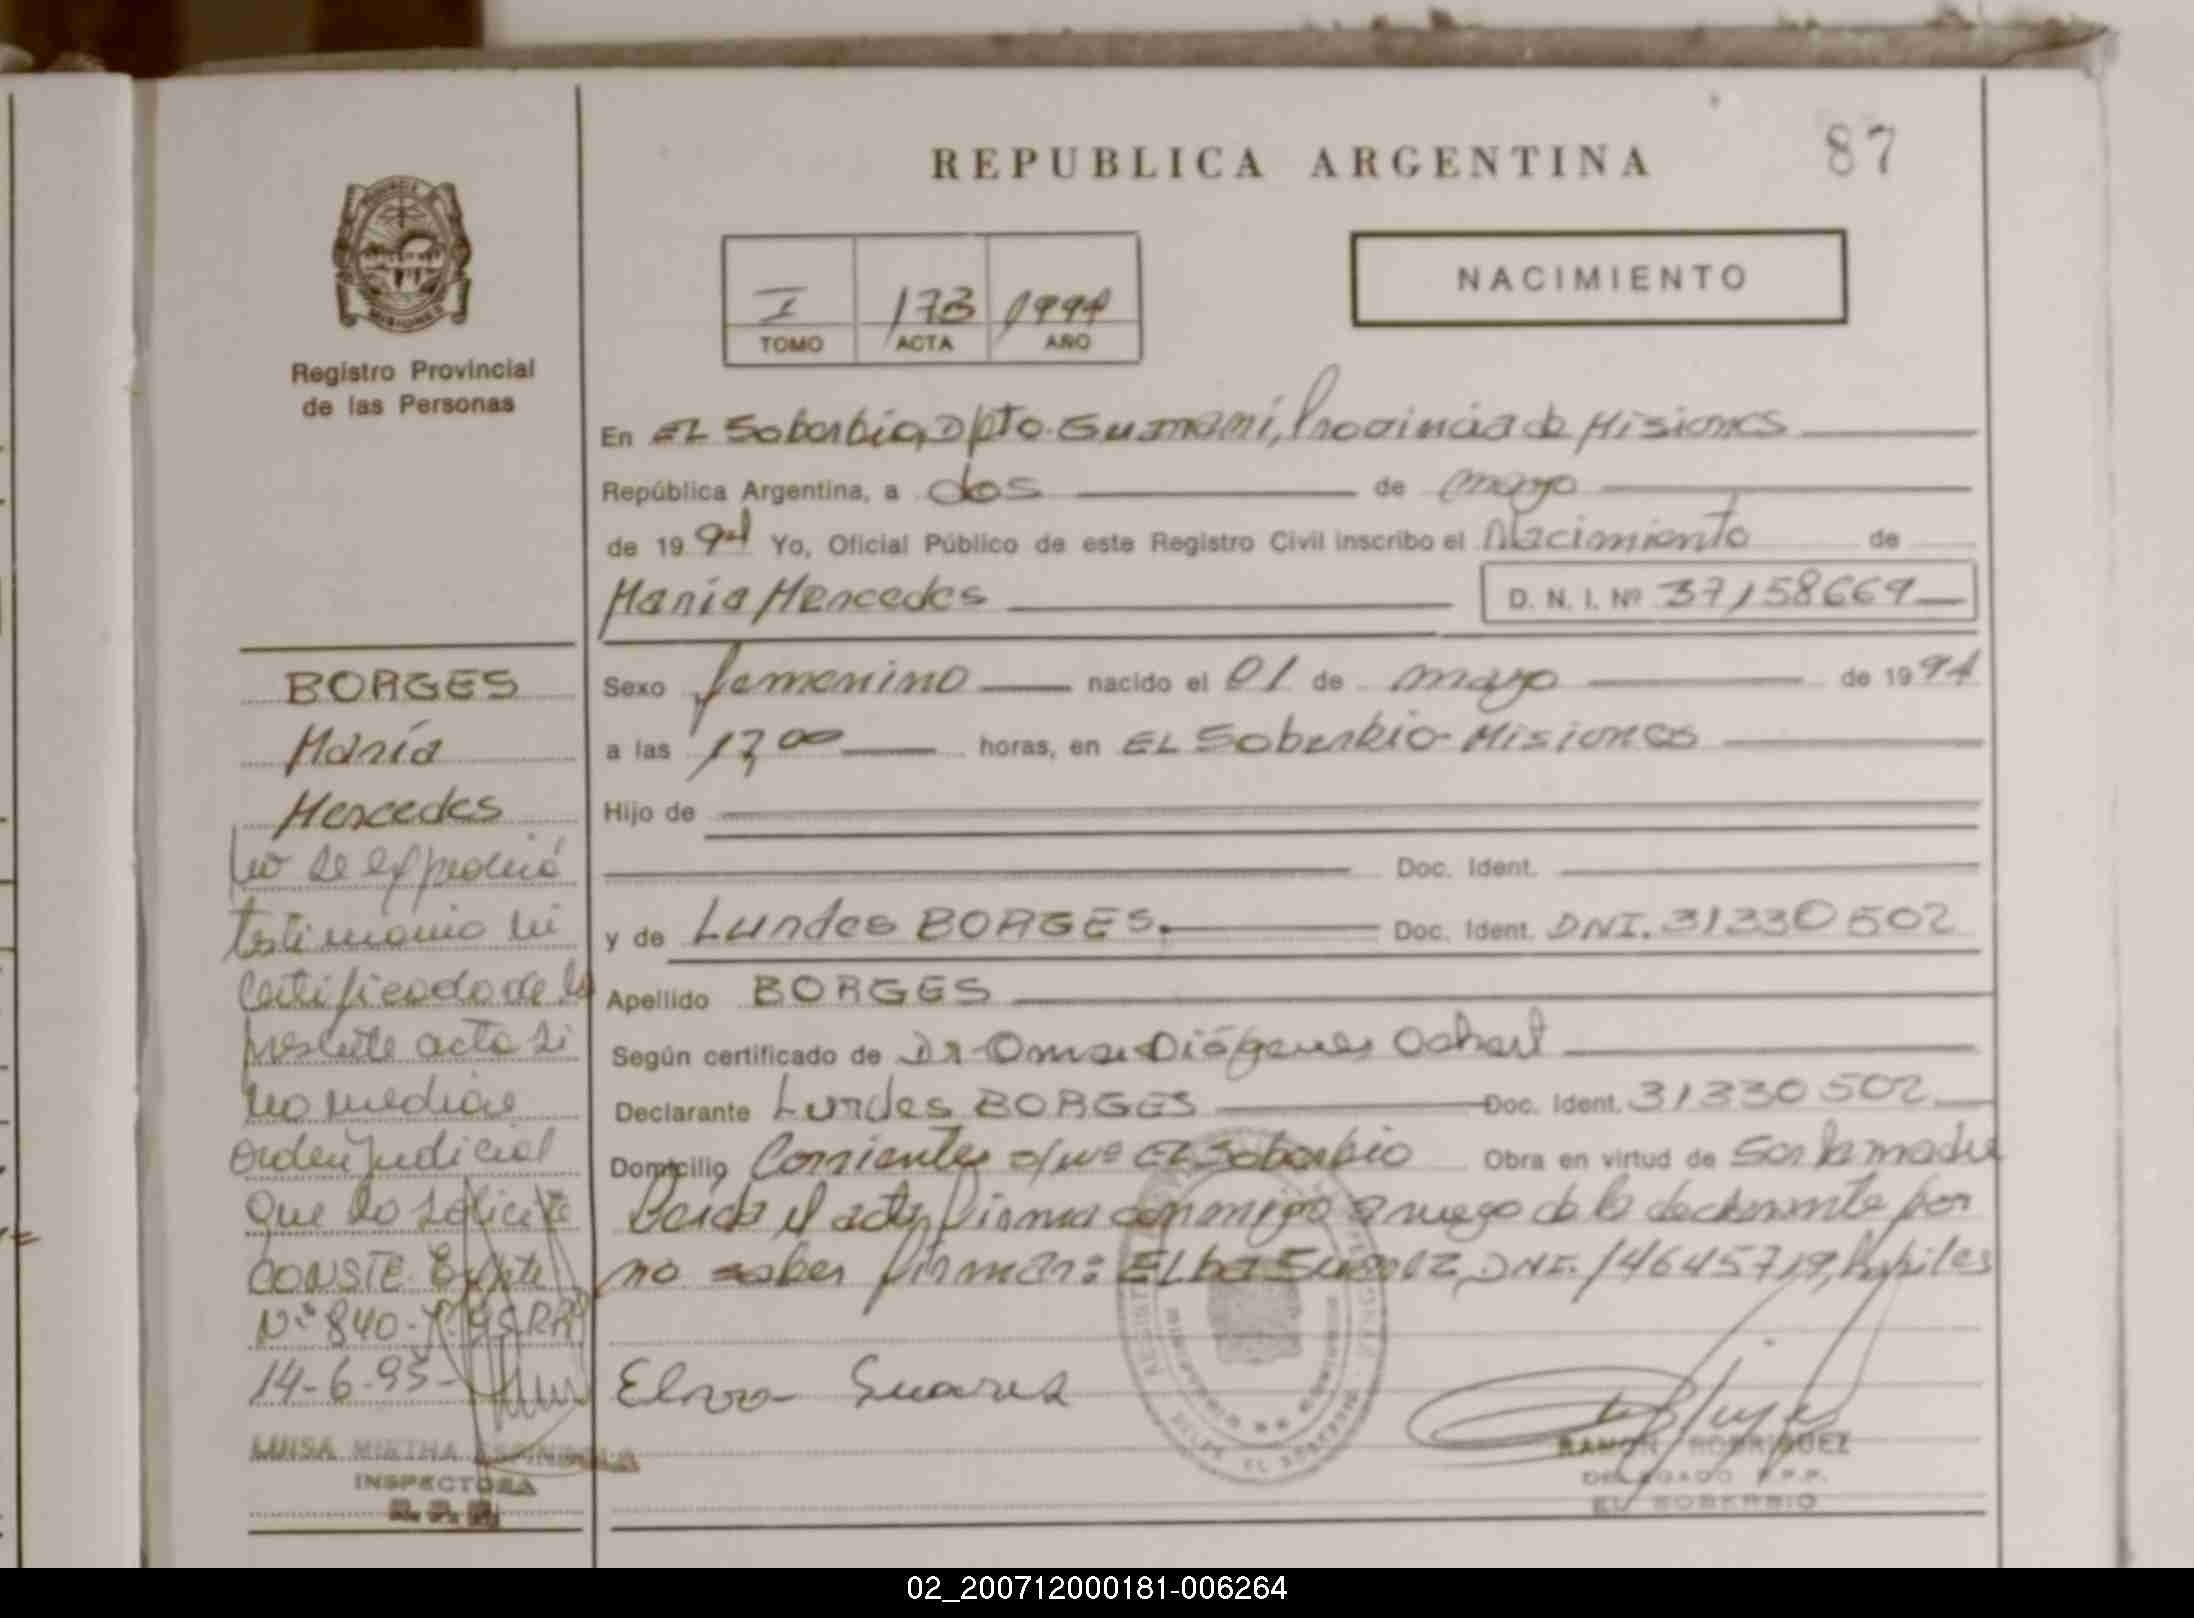 REPUBLICA ARGENTINA
87
NACIMIENTO
I 173 1994
TOMO ACTA AÑO
MISIONES
Registro Provincial
de las Personas
En EL Soberbio, Dpto. Guaraní, Provincia de Misiones
República Argentina, a dos de mayo
de 1994 Yo, Oficial Público de este Registro Civil inscribo el Nacimiento de
María Mercedes D. N. I. Nº 37158669
Sexo femenino nacido el 01 de mayo de 1994
a las 17,00 horas, en EL Soberbio-Misiones
Hijo de
Doc. Ident.
y de Lurdes BORGES. Doc. Ident. DNI. 31330502
Apellido BORGES
Según certificado de Dr. Omar Diógenes
Declarante Lurdes BORGES Doc. Ident. 31330502
Domicilio Corrientes s/nº EL Soberbio Obra en virtud de Ser la madre
Leida el acta, firma conmigo a ruego de la declarante por
no saber firmar: Suarez, DNI. 14645719,
Suarez
RAMON RODRIGUEZ
DELEGADO R.P.P.
EL SOBERBIO
BORGES
María
Mercedes
No se expedirá
testimonio ni
certificado de la
presente acta si
no mediare
orden judicial
que lo solicite
CONSTE. Expte
Nº 840-
14-6-95-
LUISA MIRTHA ESPINDOLA
INSPECTORA
R.P.P.
02_200712000181-006264